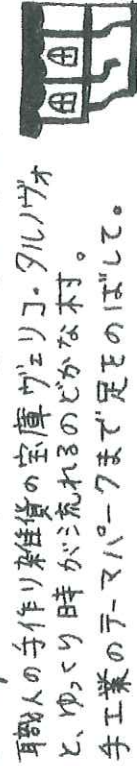 職人の手作り雑貨の宝庫ヴェリコ・タルノヴォ
と、ゆっくり時が流れるのどかな村。
手工業のテーマパークまで足をのばして。